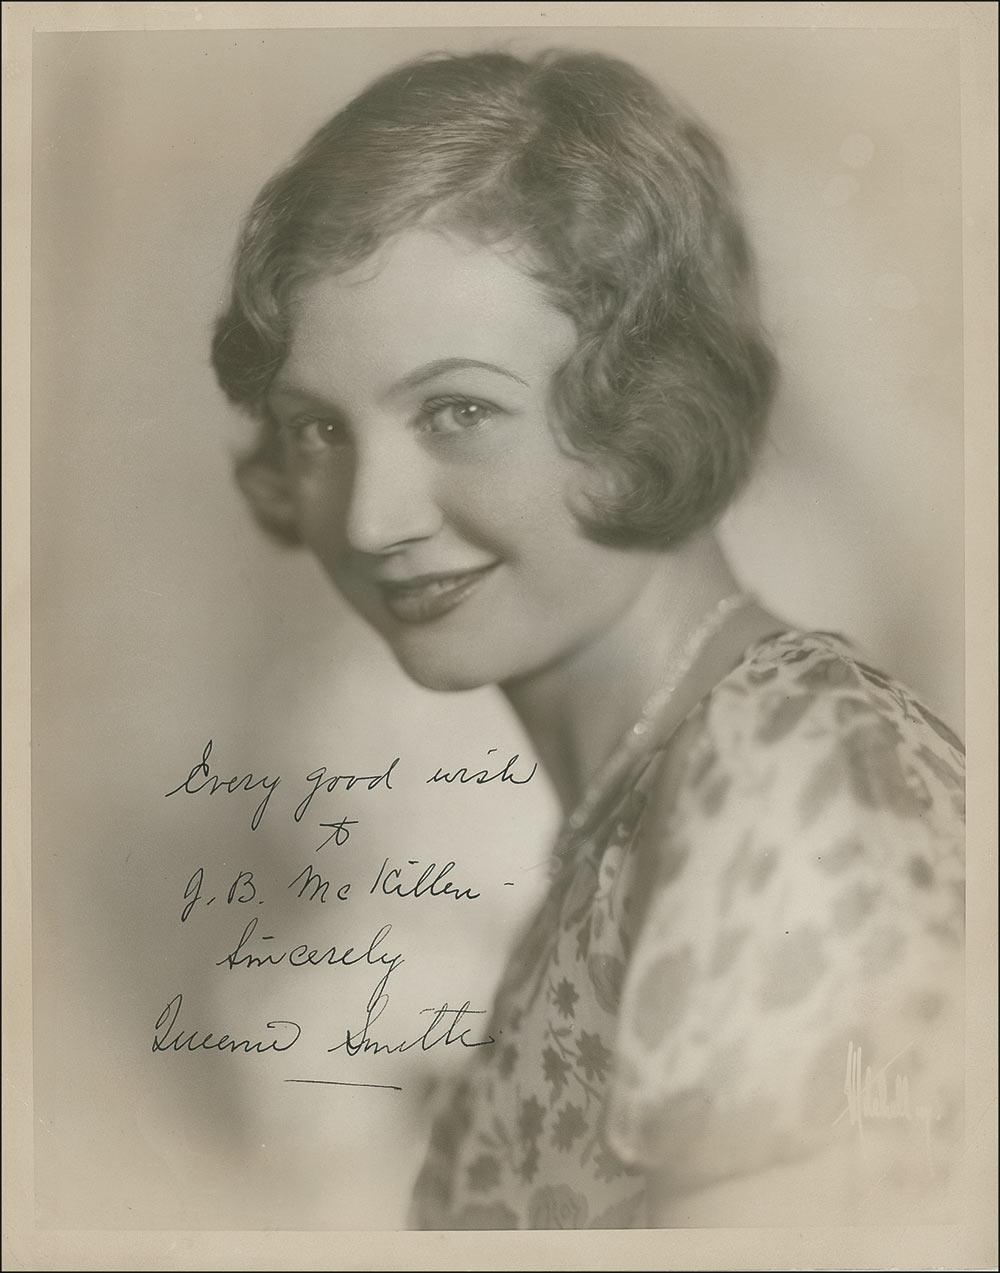 Every good wish
to
J. B. McKillen -
Sincerely
Queenie Smith